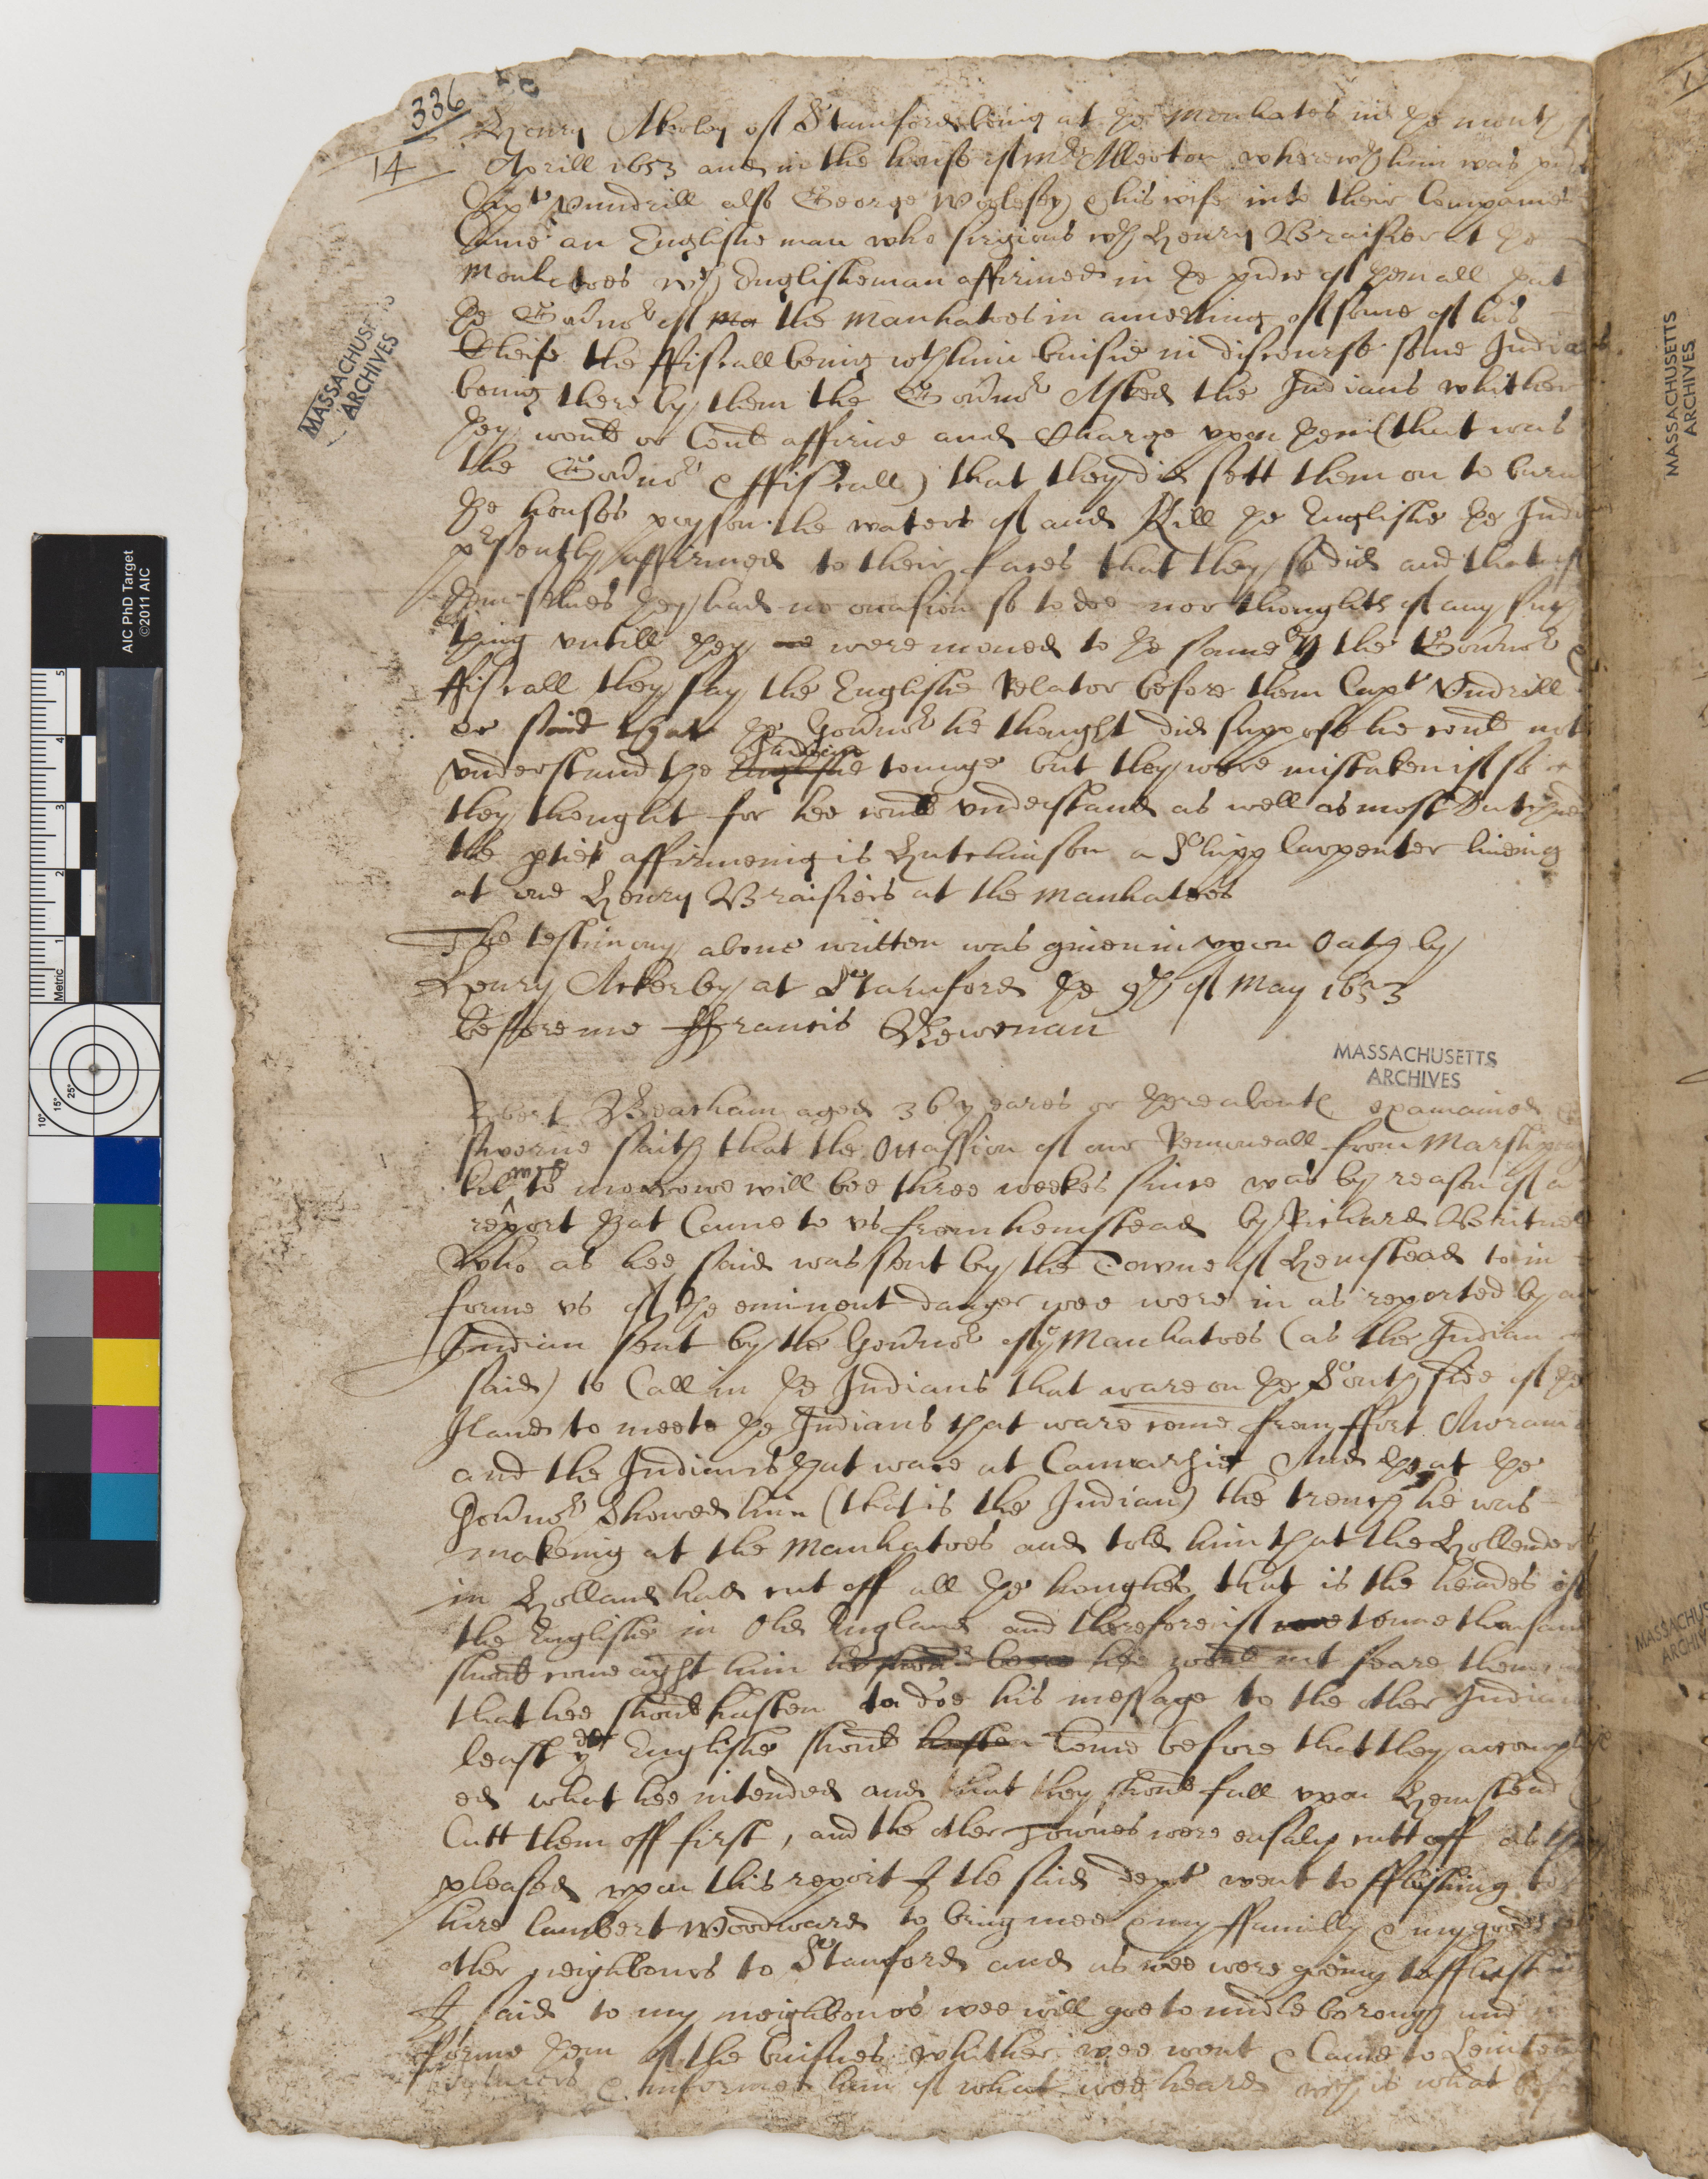 336
14
Henry Akerley of Stamford being at ye Monhatos in ye month
Aprill 1653 and in the house of mr Allerton where wth him was
Capt Vnndrill also George Woolsey & his wife into their Companies
Came an Englishe man who wth Henry Braiser at ye
Monhatoes wch Englisheman affirmed in ye of them all that
ye Gournor of ma the Manhatoes in a meeting of some of his
Cheife the ffiscall being wth him buisie in discourse some Indians
being there by them the Gournor Asked the Indians whither
they would or Could affirme and Charge vpon them (that was
the Gournor & ffiscall) that they did sett them on to burne
ye houses poyson the waters of and Kill ye Englishe ye Indians
presently affirmed to their faces that they so did and that of
themselues they had no occasion so to doe nor thoughts of any such
thing vntill they we were moued to ye same by the Gournor &
ffiscall they say the Englishe relator before them Capt Vndrill &
or said that ye Gournor he thought did suppose he could not
vnderstand the Englishe Indian tounge but they were mistaken if so
they thought for hee could vnderstand as well as most Dutchmen
the ptie affirmeing is Hutchinson a Shipp Carpenter liueing
at one Henry Braisiers at the Manhatoes
The testimony aboue written was giuen in vpon Oath by
Henry Ackerby at Stamford ye 9th of May 1653
before me ffrancis Newman
MASSACHUSETTS
ARCHIVES
Beacham aged 36 yeares or thereaboute examained &
sworne saith that the Occassion of our Remoueall from
to morrowe will bee three weekes since was by reason of a
report that Came to vs from hemstead by Richard
Who as hee said was sent by the Towne of Hemstead to in
forme vs of ye eminent danger wee were in as reported by an
Indian sent by the Gournor of ye Manhatoes (as the Indian
said) to Call in ye Indians that ware on ye South side of ye
Iland to meete ye Indians that ware come from ffort
and the Indians that ware at Canarhie And that ye
Gournor Showed him (that is the Indian) the trench he was
makeing at the Manhatoes and told him that the Hollenders
in Holland had cut off all ye houghes that is the heades of
the Englishe in Old England and therefore if tenne thousand
should come agst him hee would not feare them
that hee should hasten to doe his message to the other Indians
least ye Englishe should hasten Come before that they accomplish
ed what hee intended and that they should fall vpon Hemstead &
Cutt them off first, and the other Townes were easaly cutt off as they
pleased vpon this report I the said dept went to fflushing to
hire Lambert Woodward to bring mee & my ffamilly & my goods
other neighbours to Stamford and as wee were goeing to fflushing
I said to my neighbours wee will goe to midleborough and in
forme them of the buisnes whither wee went & Came to
& informed him of what wee heard wch is what
MASSACHUSETTS
ARCHIVES
MASSACHUSETTS
ARCHIVES
AIC PhD Target
©2011 AIC
Metric
1 2 3 4 5
10° 15° 25°